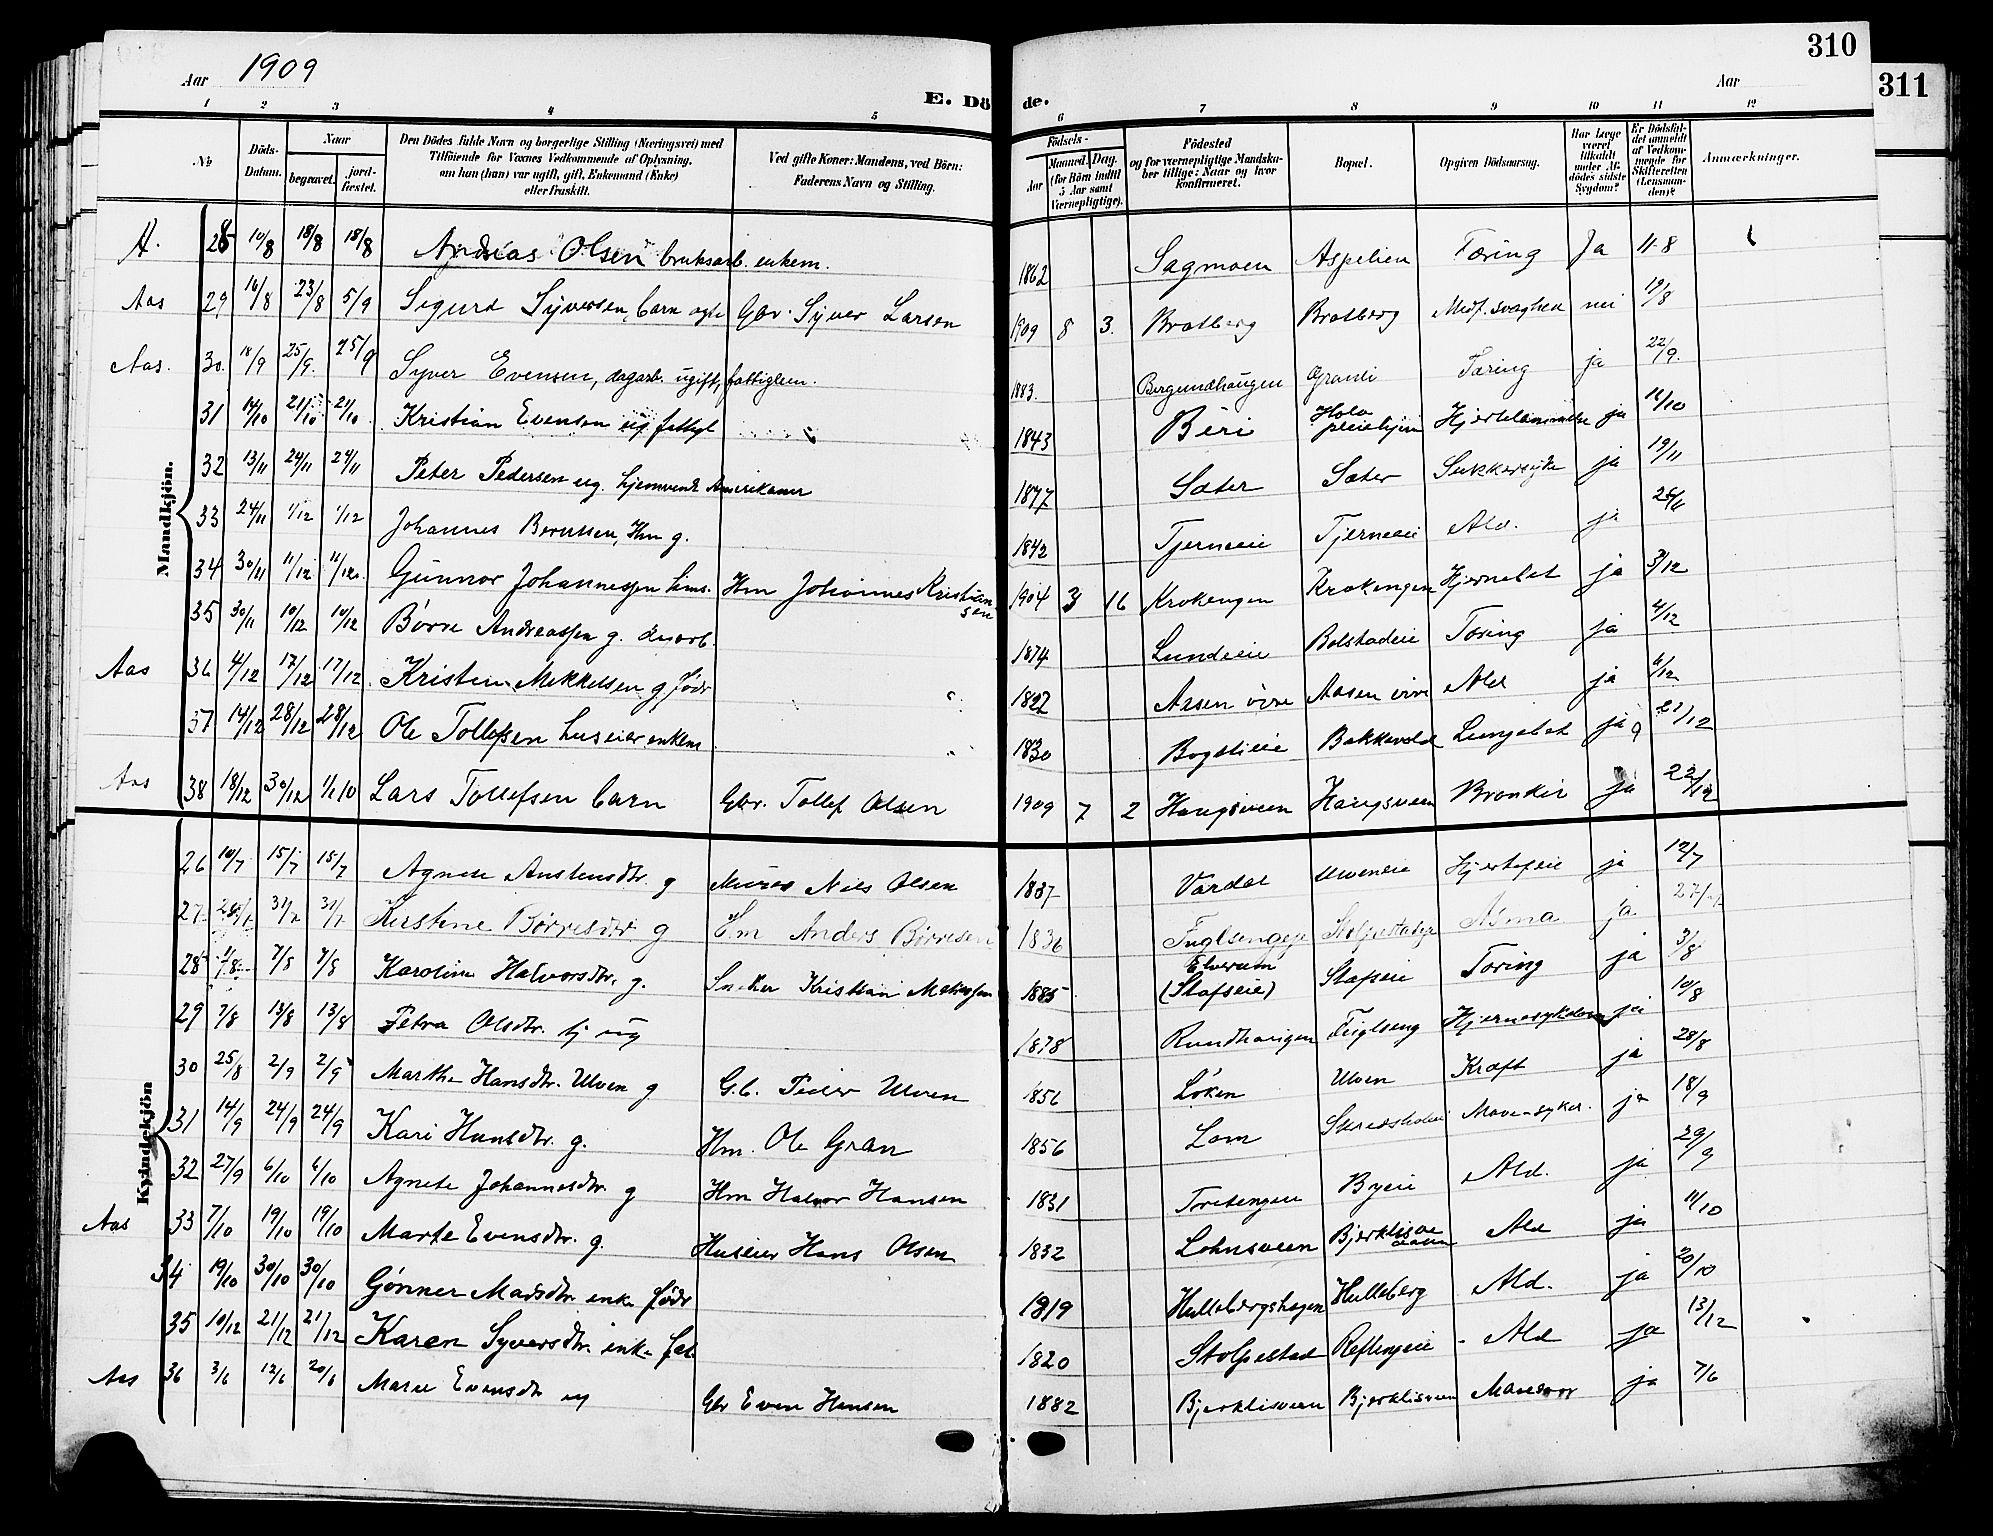 310
311
Aar 1909
Aar
E. Dö
de.
1 2 3 4 5 6 7 8 9 10 11 12
No
Döds-Datum.
Naar
begravet.
jord-fæstet.
Den Dödes fulde Navn og borgerlige Stilling (Næringsvei) med
Tilföiende for Voxnes Vedkommende af Oplysning,
om han (hun) var ugift, gift, Enkemand (Enke)
eller fraskilt.
Ved gifte Koner: Mandens, ved Börn:
Faderens Navn og Stilling.
Födsels-
Aar
Maaned. Dag.
(for Börn indtil 5 Aar samt Værnepligtige).
Födested
og for værnepligtige Mandskaber tillige: Naar og hvor konfirmeret.
Bopæl.
Opgiven Dödsaarsag.
Har Læge været tilkaldt under Afdödes sidste Sygdom?
Er Dödsfaldet anmeldt af Vedkommende for Skifteretten (Lensmanden)?
Anmærkninger.
Mandkjön.
A. 28 10/8 18/8 18/8 Andreas Olsen bruksarb. enkem. 1862 Sagmoen Aspelien Tæring Ja 11-8
Aas 29 16/8 23/8 5/9 Sigurd Syversen, barn ægte Gbr. Syver Larsen 1909 8 3. Bratberg Bratberg Medf. svaghed nei 19/8
Aas. 30. 18/9 25/9. 25/9 Syver Evensen, dagarb. ugift, fattiglem. 1883. Bergundhaugen Grandi Tæring ja 22/9.
31 14/10 21/10 21/10 Kristian Evensen ug fattigl 1843 Biri Holo pleiehjem ja 16/10
32 13/11 24/11 24/11 Peter Pedersen ug. hjemvendt Amerikaner 1877 Sæter Sæter Sukkersyke ja 19/11
33 24/11 1/12 1/12 Johannes Berntsen, Hm g. 1842 Tjerneeie Tjerneeie Ald. ja
34 30/11 11/12 11/12 Gunnar Johannessen Hm Johannes Kristiansen 1904 3 16 Krokengen Krokengen Hjernebet ja 3/12
35 30/11 10/12 10/12 Børre Andreassen g. 1874 Lundeie Bolstadeie Tæring ja 4/12
Aas 36 4/12 17/12 17/12 Kristian Mikkelsen g. föder 1822 Aasen øvre Aasen øvre Ald ja 6/12
37 14/12 28/12 28/12 Ole Tollefsen huseier enkem 1830 Bogstieie Bakkevold Lungebet ja 21/12
Aas 38 18/12 30/12 1/1 10 Lars Tollefsen barn Gbr. Tollef Olsen 1909 7 2 Haugsveen Haugsveen Bronkit ja 22/12
Kvindekjön
26 10/7 15/7 15/7 Agnete Anstensdtr. g Murer Nils Olsen 1837 Vardal Ulveneie Hjertefeil ja 12/7
27 31/7 31/7 Kirstine Børresdtr g Hm Anders Børresen 1836 Fuglsengeie Stolpestadeie Asma ja 27/7
28 1/8 7/8 7/8 Karoline Halvorsdtr. g. Snekker Kristian 1885 Elverum (Stafseie) Stafseie Tæring ja 3/8
29 7/8 13/8 13/8 Petra Olsdtr. tj ug 1878 Rundhaugen Fuglseng Hjernesykdom ja 10/8
30 25/8 2/9 2/9 Marthe Hansdtr. Ulven g G.b. Peder Ulven 1856 Løken Ulven Kræft ja 28/8
31 14/9 24/9 24/9 Kari Hansdtr. g. Hm. Ole Gran 1856 Lom Mavesyksd. ja 18/9
32 27/9 6/10 6/10 Agnete Johannesdtr. g Hm Halvor Hansen 1831 Tretengen Byeie Ald. ja 29/9
Aas 33 7/10 19/10 19/10 Marte Evensdtr. g. Huseier Hans Olsen 1832 Lohnsveen Bjerklisveen Ald ja 11/10
34 19/10 30/10 30/10 Gønner Madsdtr. enke föder 1819 Hullebergshagen Hulleberg Ald. ja 20/10
35 10/12 21/12 21/12 Karen Syversdtr. enke fat. 1820 Stolpestad Reflengeie Ald ja 13/12
Aas 36 3/6 12/6 20/6 Marie Evensdtr ug Gbr Even Hansen 1882 Bjerklisveen Bjerklisveen Mavesaar ja 7/6